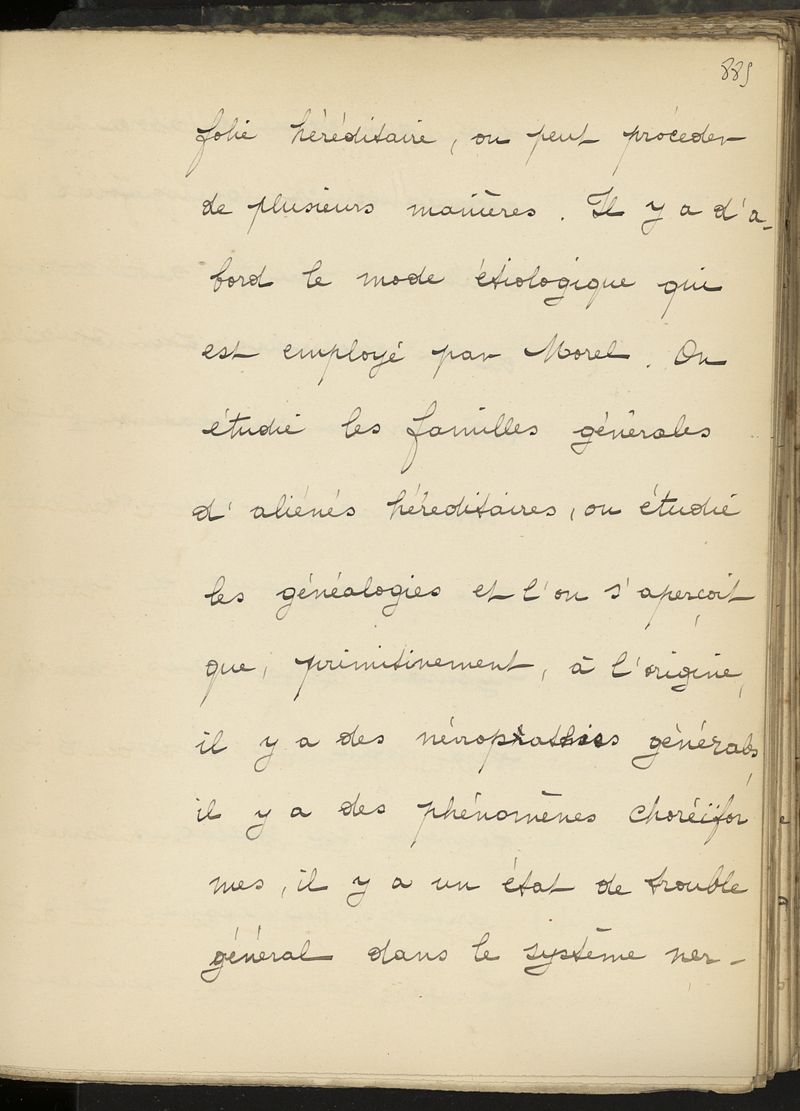 889
folie héréditaire, on peut procéder
de plusieurs manières. Il y a d'a-
bord le mode étiologique qui
est employé par Morel. On
étudie les familles générales
d'aliénés héréditaires, on étudie
les généalogies et l'on s'aperçoit
que, primitivement, à l'origine,
il y a des névropathies générales,
il y a des phénomènes choréïfor
mes, il y a un état de trouble
général dans le système ner-